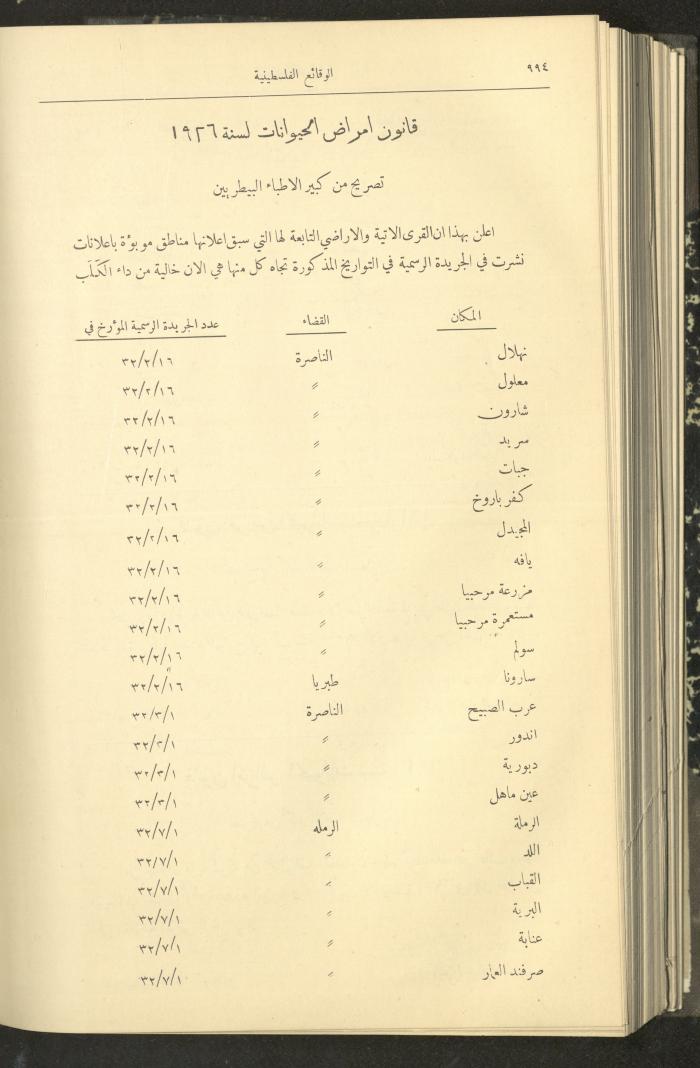 ٩٩٤
الوقائع الفلسطينية
قانون امراض الحيوانات لسنة ١٩٢٦
تصريح من كبير الاطباء البيطريين
اعلن بهذا ان القرى الاتية والاراضي التابعة لها التي سبق اعلانها مناطق موبؤة باعلانات
نشرت في الجريدة الرسمية في التواريخ المذكورة تجاه كل منها هي الان خالية من داء الكَلَب
المكان القضاء عدد الجريدة الرسمية المؤرخ في
نهلال الناصرة ٣٢/٢/١٦
معلول 〃 ٣٢/٢/١٦
شارون 〃 ٣٢/٢/١٦
سريد 〃 ٣٢/٢/١٦
جبات 〃 ٣٢/٢/١٦
كفر باروخ 〃 ٣٢/٢/١٦
المجيدل 〃 ٣٢/٢/١٦
يافه 〃 ٣٢/٢/١٦
مزرعة مرحبيا 〃 ٣٢/٢/١٦
مستعمرة مرحبيا 〃 ٣٢/٢/١٦
سولم 〃 ٣٢/٢/١٦
سارونا طبريا ٣٢/٢/١٦
عرب الصبيح الناصرة ٣٢/٣/١
اندور 〃 ٣٢/٣/١
دبورية 〃 ٣٢/٣/١
عين ماهل 〃 ٣٢/٣/١
الرملة الرمله ٣٢/٧/١
اللد 〃 ٣٢/٧/١
القباب 〃 ٣٢/٧/١
البرية 〃 ٣٢/٧/١
عنابة 〃 ٣٢/٧/١
صرفند العمار 〃 ٣٢/٧/١